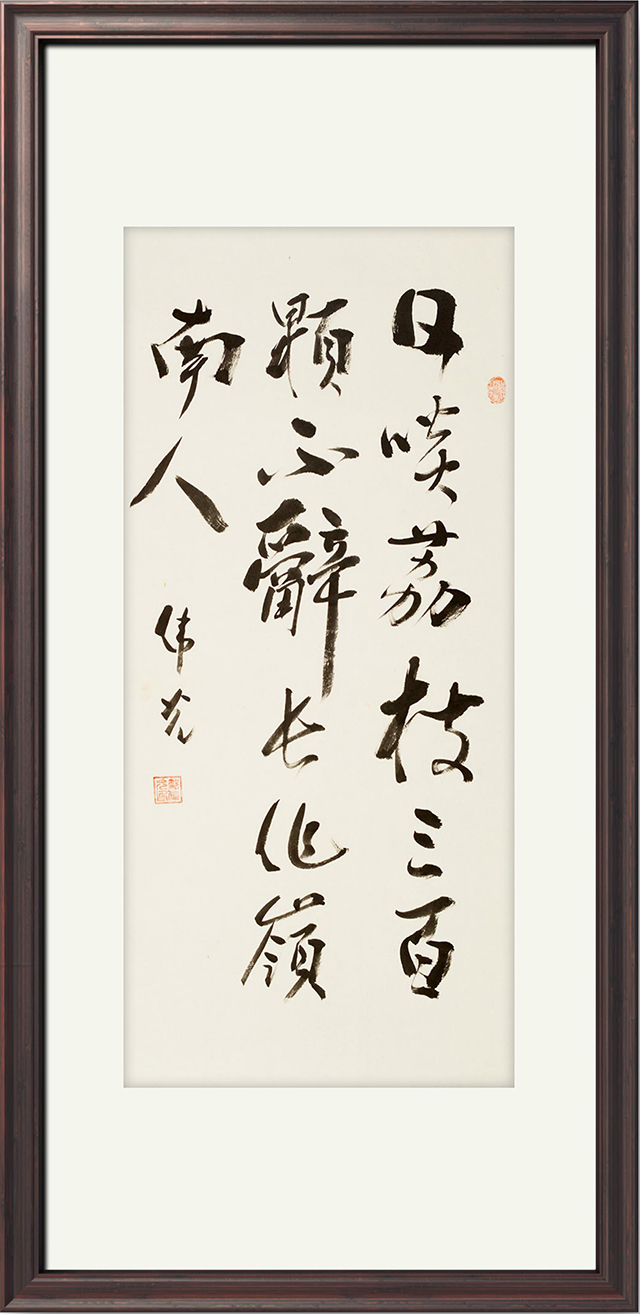 日啖荔枝三百
顆不辭長作嶺
南人
伟光